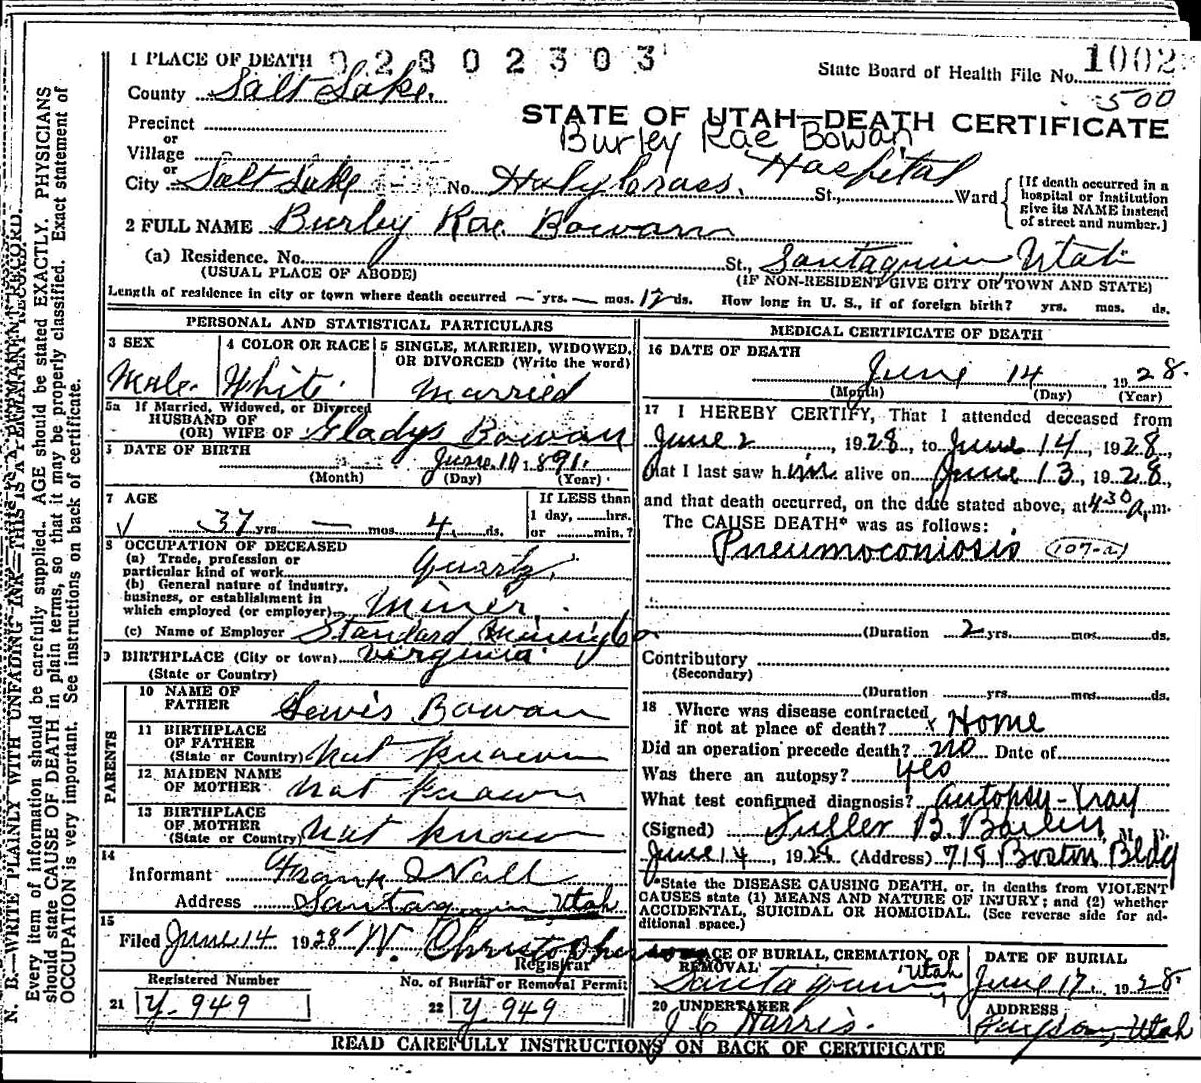 1 PLACE OF DEATH 02802303
State Board of Health File No. 1002
500
County Salt Lake.
STATE OF UTAH—DEATH CERTIFICATE
Precinct
or
Burley Rae Bowan
Village
or
City Salt Lake No. Holy Cross Hospital St., Ward
[If death occurred in a hospital or institution give its NAME instead of street and number.]
2 FULL NAME Burley Rae Bowan
(a) Residence. No. St., Santaquin, Utah
(USUAL PLACE OF ABODE) (IF NON-RESIDENT GIVE CITY OR TOWN AND STATE)
Length of residence in city or town where death occurred — yrs. — mos. 12 ds. How long in U. S., if of foreign birth? yrs. mos. ds.
PERSONAL AND STATISTICAL PARTICULARS
3 SEX 4 COLOR OR RACE 5 SINGLE, MARRIED, WIDOWED, OR DIVORCED (Write the word)
Male White Married
5a If Married, Widowed, or Divorced
HUSBAND OF
(OR) WIFE OF Gladys Bowan
DATE OF BIRTH June 10 1891.
(Month) (Day) (Year)
7 AGE If LESS than
1 day, hrs.
37 yrs. — mos. 4 ds. or min.?
8 OCCUPATION OF DECEASED
(a) Trade, profession or
particular kind of work Quartz
(b) General nature of industry,
business, or establishment in
which employed (or employer) Miner
(c) Name of Employer Standard Mining Co
9 BIRTHPLACE (City or town) Virginia
(State or Country)
PARENTS
10 NAME OF
FATHER Lewis Bowan
11 BIRTHPLACE
OF FATHER
(State or Country) Not known
12 MAIDEN NAME
OF MOTHER Not known
13 BIRTHPLACE
OF MOTHER
(State or Country) Not know
14
Informant Frank
Address Santaquin Utah
15
Filed June 14 1928 W. Christopherson
Registrar
Registered Number No. of Burial or Removal Permit
21 Y-949 22 Y-949
MEDICAL CERTIFICATE OF DEATH
16 DATE OF DEATH
June 14, 1928.
(Month) (Day) (Year)
17 I HEREBY CERTIFY, That I attended deceased from
June 2, 1928, to June 14, 1928,
that I last saw him alive on June 13, 1928,
and that death occurred, on the date stated above, at 430 a.m.
The CAUSE DEATH* was as follows:
Pneumoconiosis (107-a)
(Duration 2 yrs. mos. ds.
Contributory
(Secondary)
(Duration yrs. mos. ds.
18 Where was disease contracted
if not at place of death? x Home
Did an operation precede death? no Date of
Was there an autopsy? yes
What test confirmed diagnosis? Autopsy - Xray
(Signed) Fuller B. M. D.
June 14, 1928 (Address) 719 Boston Bldg
*State the DISEASE CAUSING DEATH, or, in deaths from VIOLENT
CAUSES state (1) MEANS AND NATURE OF INJURY; and (2) whether
ACCIDENTAL, SUICIDAL OR HOMICIDAL. (See reverse side for additional space.)
PLACE OF BURIAL, CREMATION, OR
REMOVAL DATE OF BURIAL
Santaquin Utah June 17, 1928
20 UNDERTAKER ADDRESS
J C Harris. Payson, Utah
READ CAREFULLY INSTRUCTIONS ON BACK OF CERTIFICATE
N. B.—WRITE PLAINLY WITH UNFADING INK—THIS IS A PERMANENT RECORD.
Every item of information should be carefully supplied. AGE should be stated EXACTLY. PHYSICIANS
should state CAUSE OF DEATH in plain terms, so that it may be properly classified. Exact statement of
OCCUPATION is very important. See instructions on back of certificate.